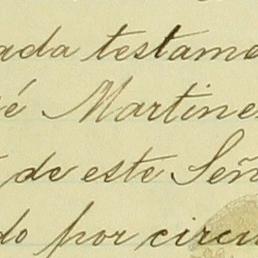 ada testame
é Martine
de este Señ
do por circu